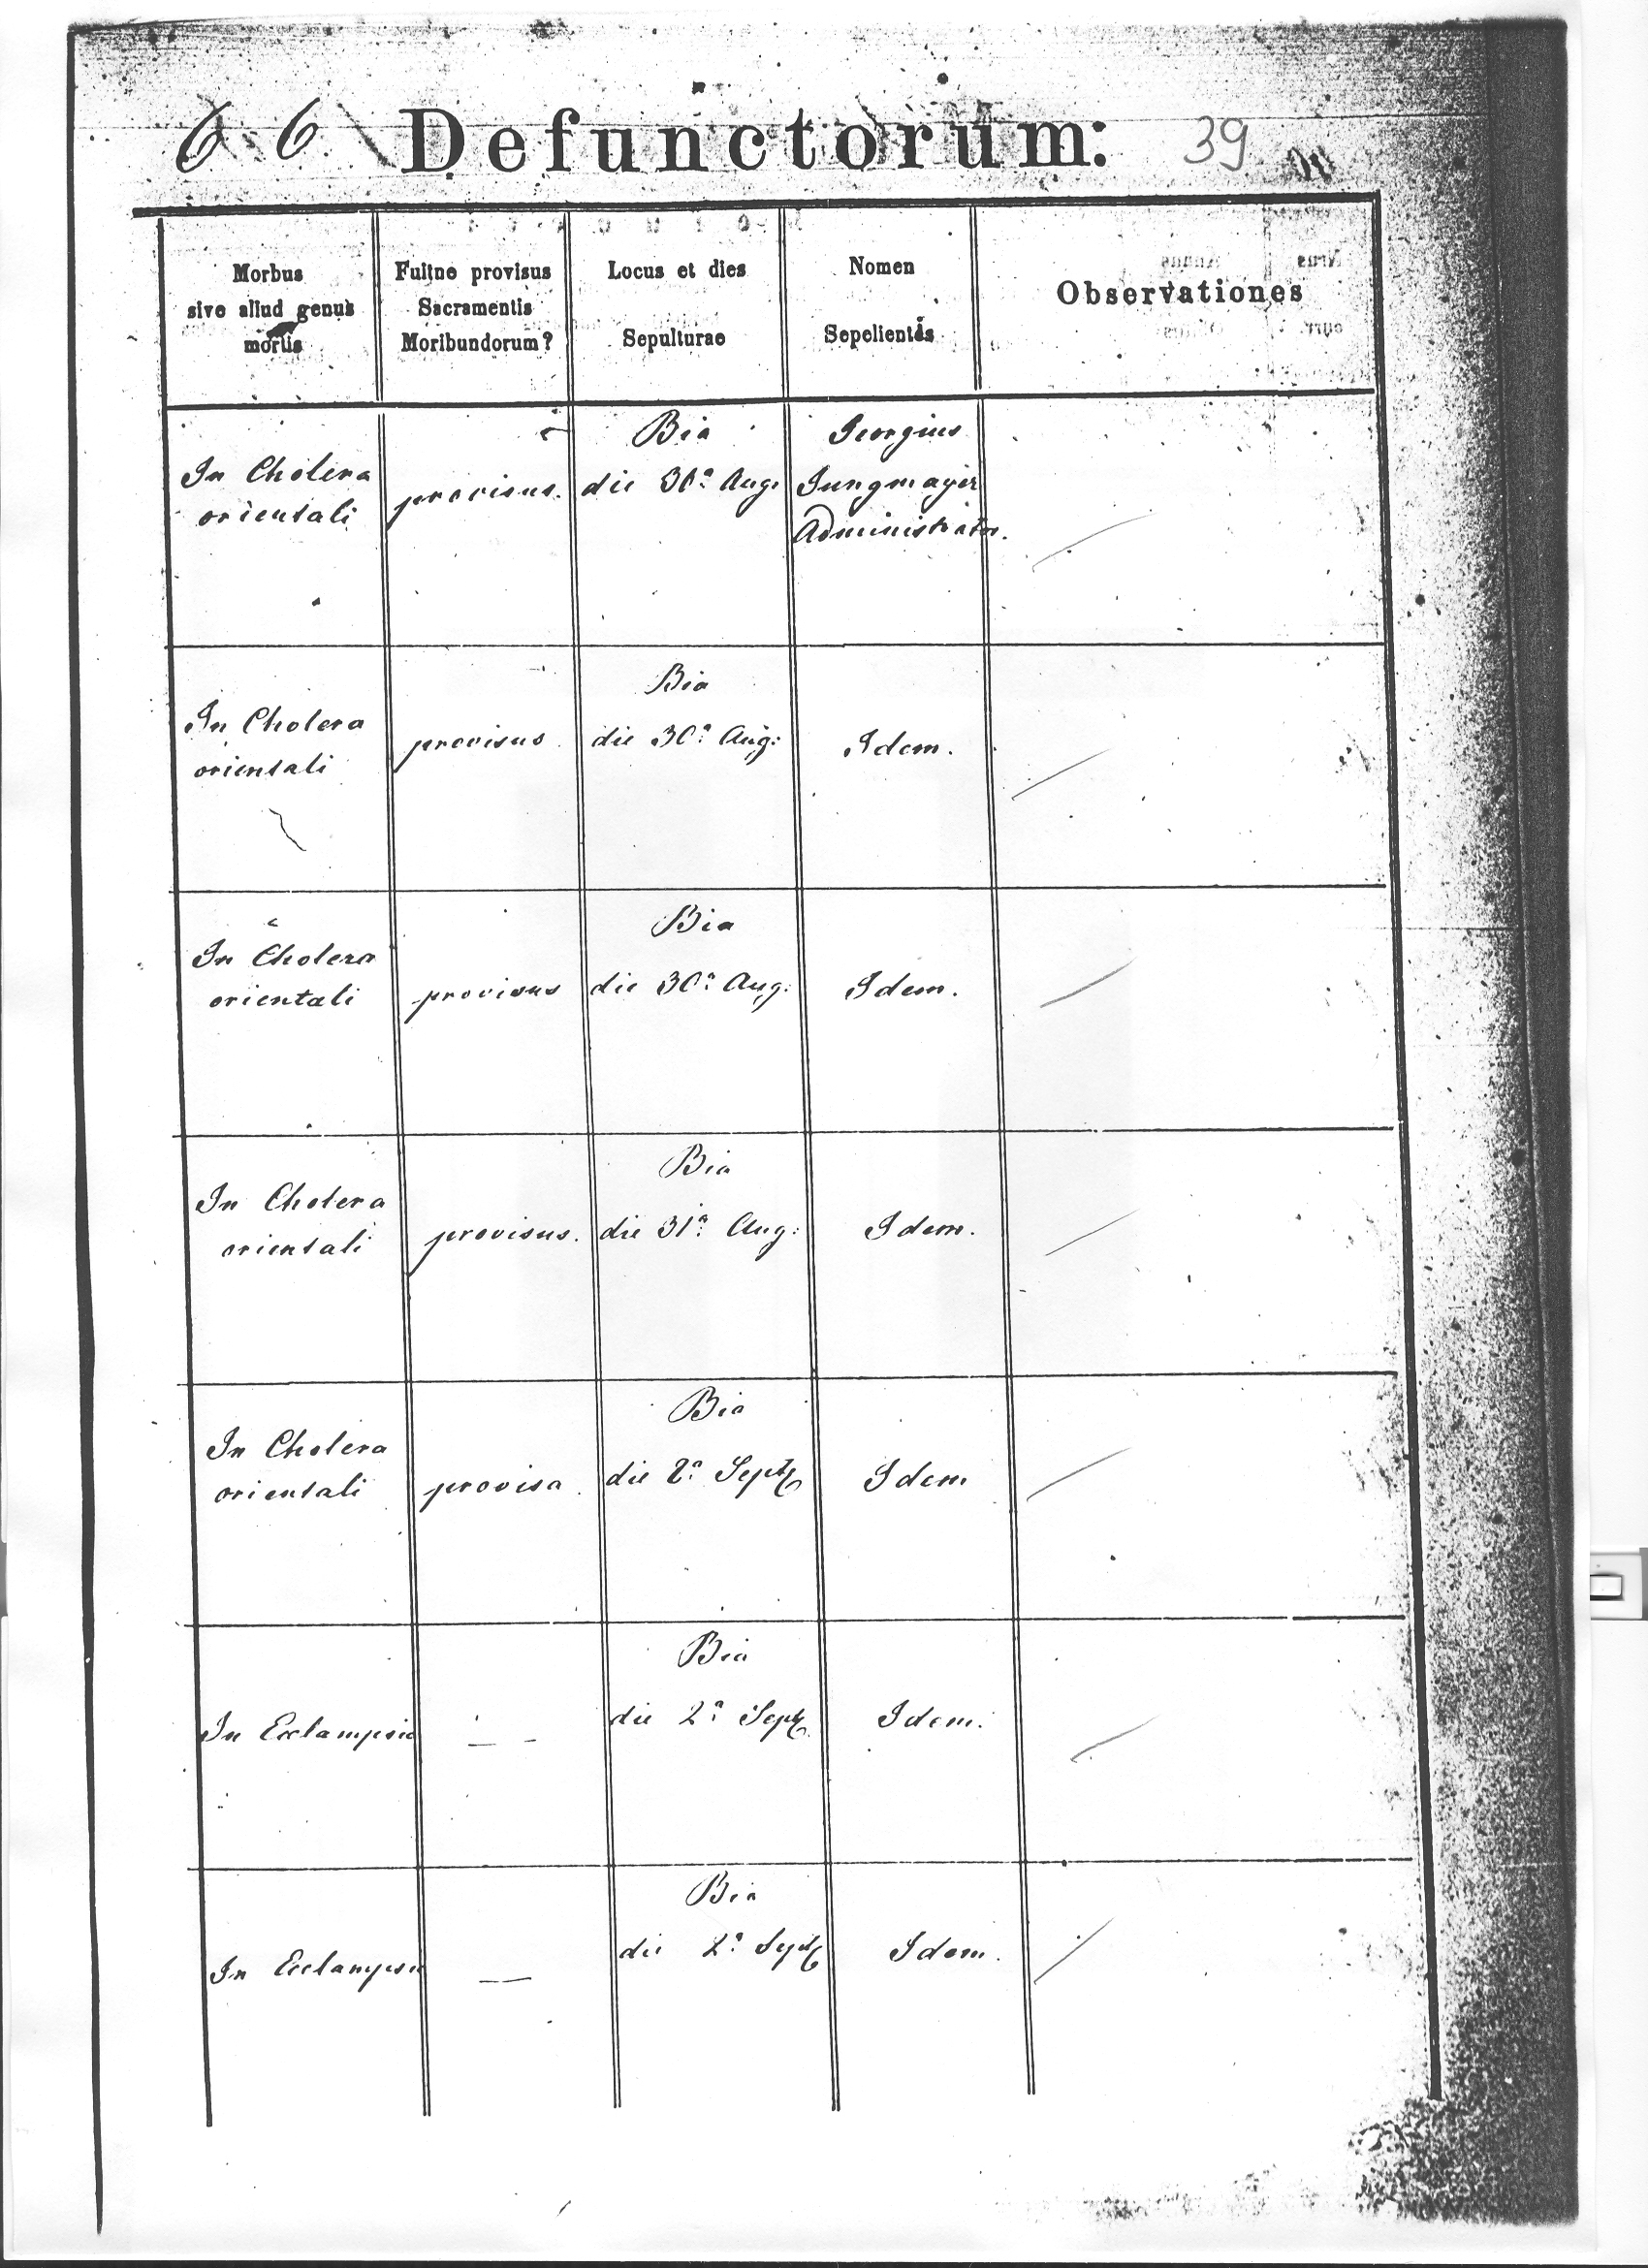 66 Defunctorum: 39
Morbus
sive aliud genus
mortis
Fuitne provisus
Sacramentis
Moribundorum?
Locus et dies
Sepulturae
Nomen
Sepelientis
Observationes
In Cholera
orientali
provisus.
Bia
die 30ª Aug.
Georgius
Jungmayer
Administrator.
In Cholera
orientali
provisus.
Bia
die 30ª Aug:
Idem.
In Cholera
orientali
provisus
Bia
die 30ª Aug:
Idem.
In Cholera
orientali
provisus.
Bia
die 31ª Aug:
Idem.
In Cholera
orientali
provisa.
Bia
die 2ª Sept
Idem
In Eclampsia
Bia
die 2ª Sept
Idem.
In Eclampsia
Bia
die 2ª Sept
Idem.